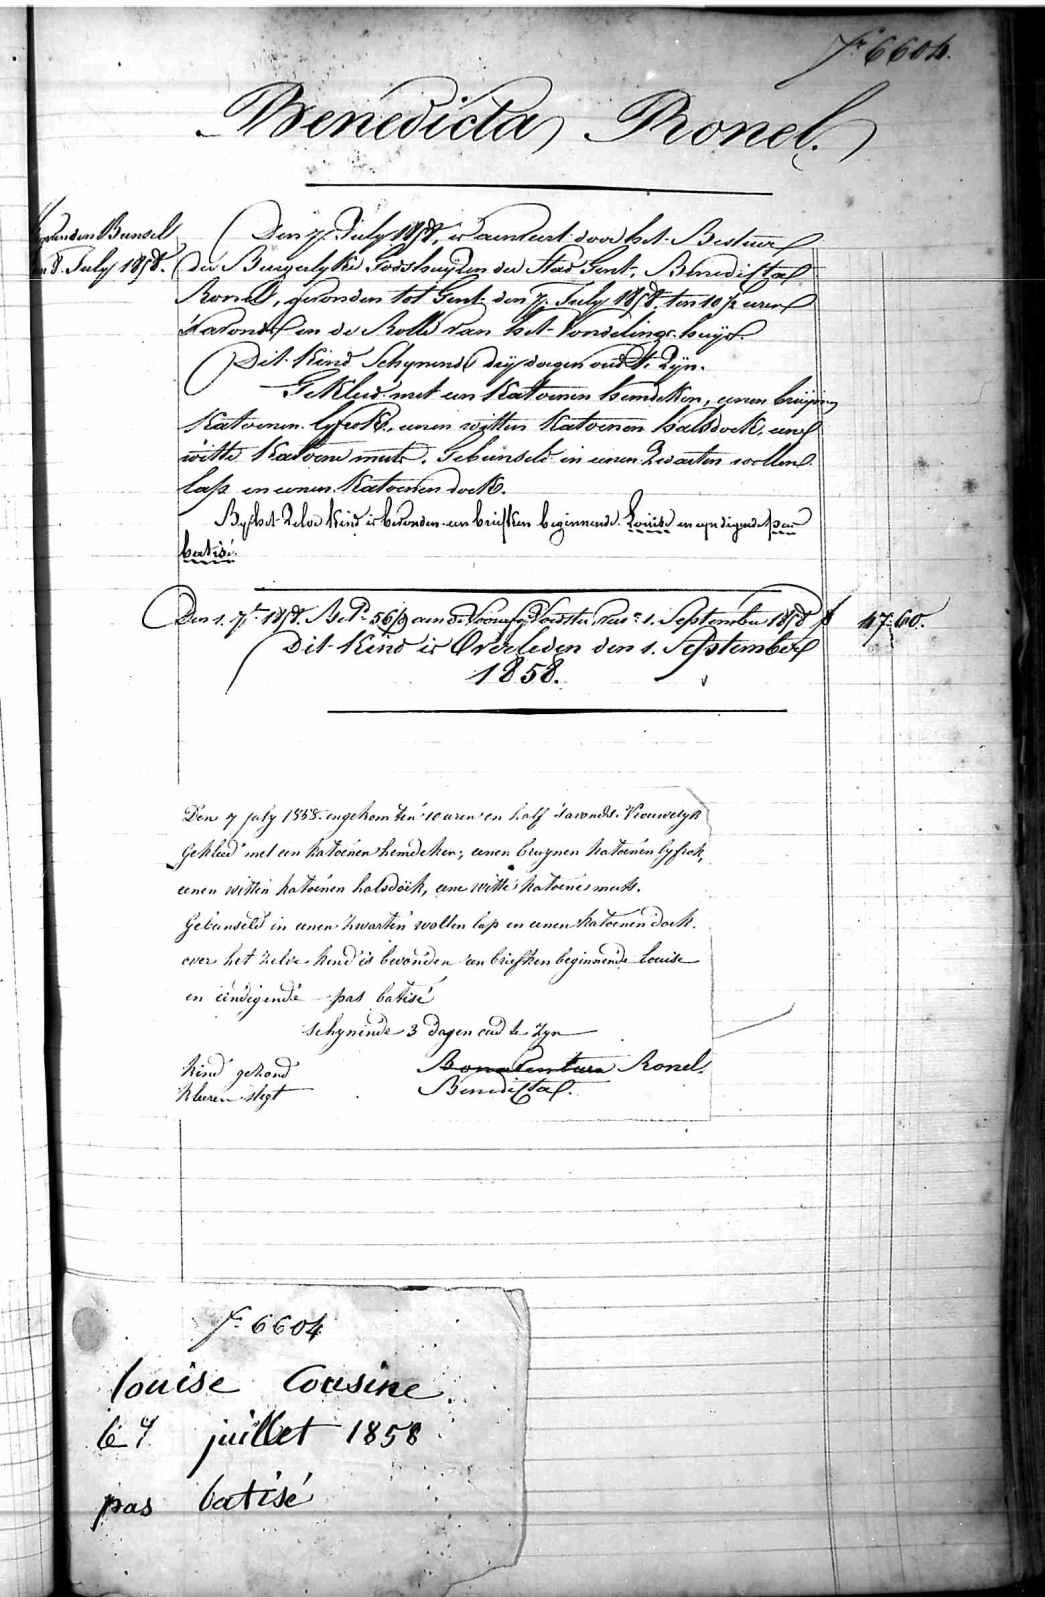 f° 6604.
Benedicta Ronel.
Bunsel
8. July 1858.
Den 7. July 1858, is aenveert door het Bestuur
der Burgerlyke Godshuyzen der Stad Gent, Benedicta
Ronel, gevonden tot Gent den 7. July 1858, ten 10 1/2 uren
'savonds in de Rolle van het Vondelings-huys.
Dit Kind Schynende dry dagen oud te Zyn.
Gekleed met een Katoenen hemdeken, eenen bruynen
Katoenen lyfrok, eenen witten Katoenen halsdoek, eene
witte Katoene muts. Gebunseld in eenen Zwarten wollen
lap en eenen Katoenen doek.
By het Zelve Kind is bevonden een briefken beginnende Louise en eyndigende pas
batisé.
Den 1. 7bre 1858. Betd 569 aen de Voorsz. Voedster, tot 1. September 1858 f 17-60.
Dit Kind is Overleden den 1. September
1858.
Den 7 july 1858. ingekom ten 10 uren en half 'savonds. Vrouwelyk
Gekleed met een katoenen hemdeken, eenen bruynen katoenen lyfrok,
eenen witten katoenen halsdoek, eene witte katoene muts.
Gebunseld in eenen zwarten wollen lap en eenen katoenen doek.
over het zelve kend is bevonden een briefken beginnende Louise
en eindigende pas batisé
schynende 3 dagen oud te Zyn
Kind gezond Bonaventura Ronel.
Kleeren slegt Benedicta.
f° 6604
louise Cousine
le 7 juillet 1858
pas batisé